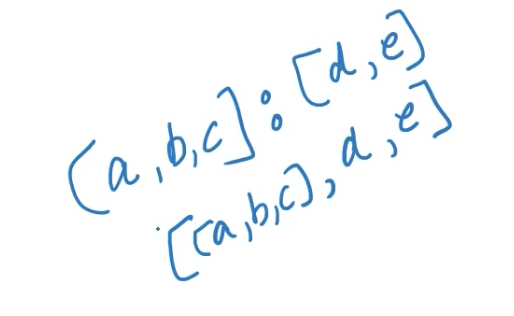 [a,b,c]:[d,e]
[[a,b,c],d,e]